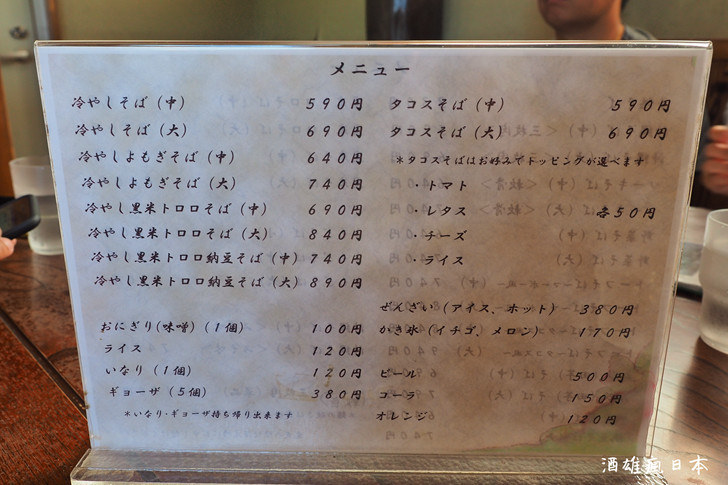 メニュー
冷やしそば(中) 590円
冷やしそば(大) 690円
冷やしよもぎそば(中) 640円
冷やしよもぎそば(大) 740円
冷やし黒米トロロそば(中) 690円
冷やし黒米トロロそば(大) 840円
冷やし黒米トロロ納豆そば(中) 740円
冷やし黒米トロロ納豆そば(大) 890円
おにぎり(味噌)(1個) 100円
ライス 120円
いなり(1個) 120円
ギョーザ(5個) 380円
*いなり・ギョーザ持ち帰り出来ます
タコスそば(中) 590円
タコスそば(大) 690円
*タコスそばはお好みでトッピングが選べます
・トマト
・レタス 各50円
・チーズ
・ライス
ぜんざい(アイス、ホット) 380円
かき氷(イチゴ、メロン) 170円
ビール 500円
コーラ 150円
オレンジ 120円
酒雄瘋日本